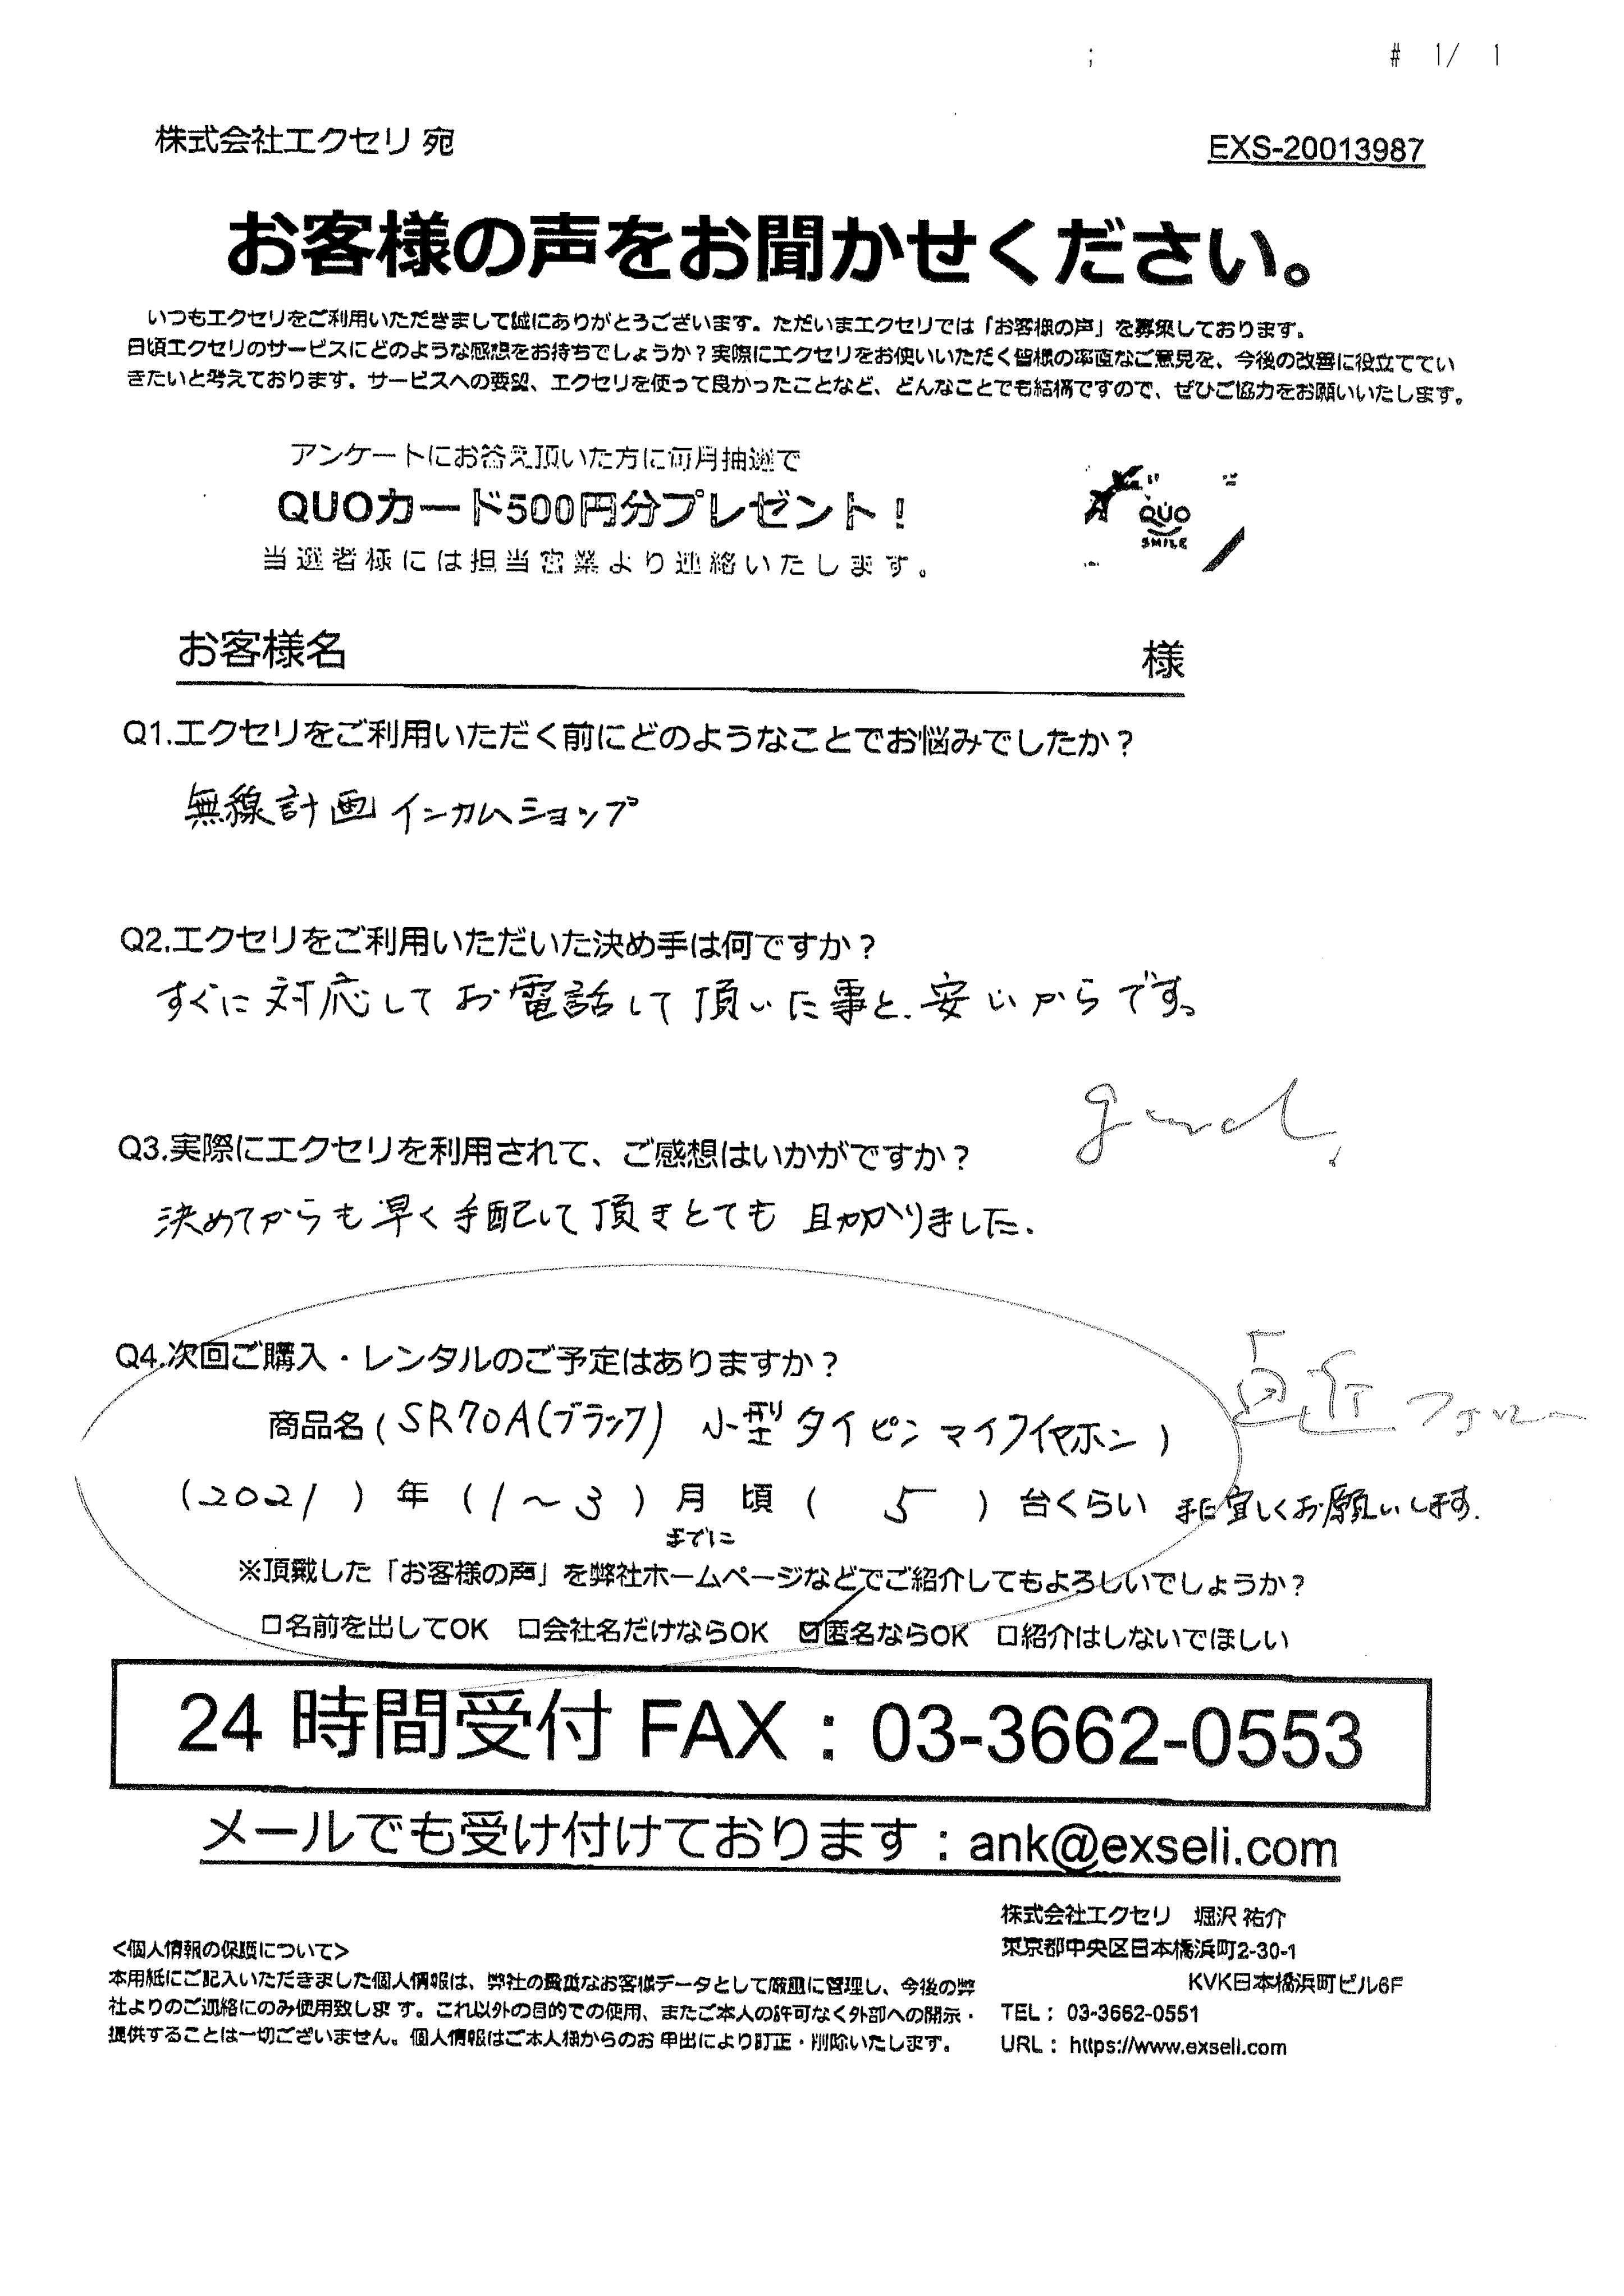 ; # 1/ 1
株式会社エクセリ 宛
EXS-20013987
お客様の声をお聞かせください。
いつもエクセリをご利用いただきまして誠にありがとうございます。ただいまエクセリでは「お客様の声」を募集しております。
日頃エクセリのサービスにどのような感想をお持ちでしょうか？実際にエクセリをお使いいただく皆様の率直なご意見を、今後の改善に役立ててい
きたいと考えております。サービスへの要望、エクセリを使って良かったことなど、どんなことでも結構ですので、ぜひご協力をお願いいたします。
アンケートにお答え頂いた方に毎月抽選で
QUOカード500円分プレゼント！
当選者様には担当営業より連絡いたします。
QUO
SMILE
お客様名 様
Q1.エクセリをご利用いただく前にどのようなことでお悩みでしたか？
無線計画インカムショップ
Q2.エクセリをご利用いただいた決め手は何ですか？
すぐに対応してお電話して頂いた事と、安いからです。
Q3.実際にエクセリを利用されて、ご感想はいかがですか？
決めてからも早く手配して頂きとても助かりました。
Q4.次回ご購入・レンタルのご予定はありますか？
商品名(SR70A(ブラック) 小型タイピンマイクイヤホン)
(2021)年(1〜3)月頃(5)台くらい また宜しくお願いします。
までに
※頂戴した「お客様の声」を弊社ホームページなどでご紹介してもよろしいでしょうか？
□名前を出してOK □会社名だけならOK ☑匿名ならOK □紹介はしないでほしい
24 時間受付 FAX：03-3662-0553
メールでも受け付けております：ank@exseli.com
株式会社エクセリ 堀沢 祐介
東京都中央区日本橋浜町2-30-1
KVK日本橋浜町ビル6F
TEL： 03-3662-0551
URL： https://www.exseli.com
<個人情報の保護について>
本用紙にご記入いただきました個人情報は、弊社の貴重なお客様データとして厳重に管理し、今後の弊
社よりのご連絡にのみ使用致します。これ以外の目的での使用、またご本人の許可なく外部への開示・
提供することは一切ございません。個人情報はご本人様からのお申出により訂正・削除いたします。